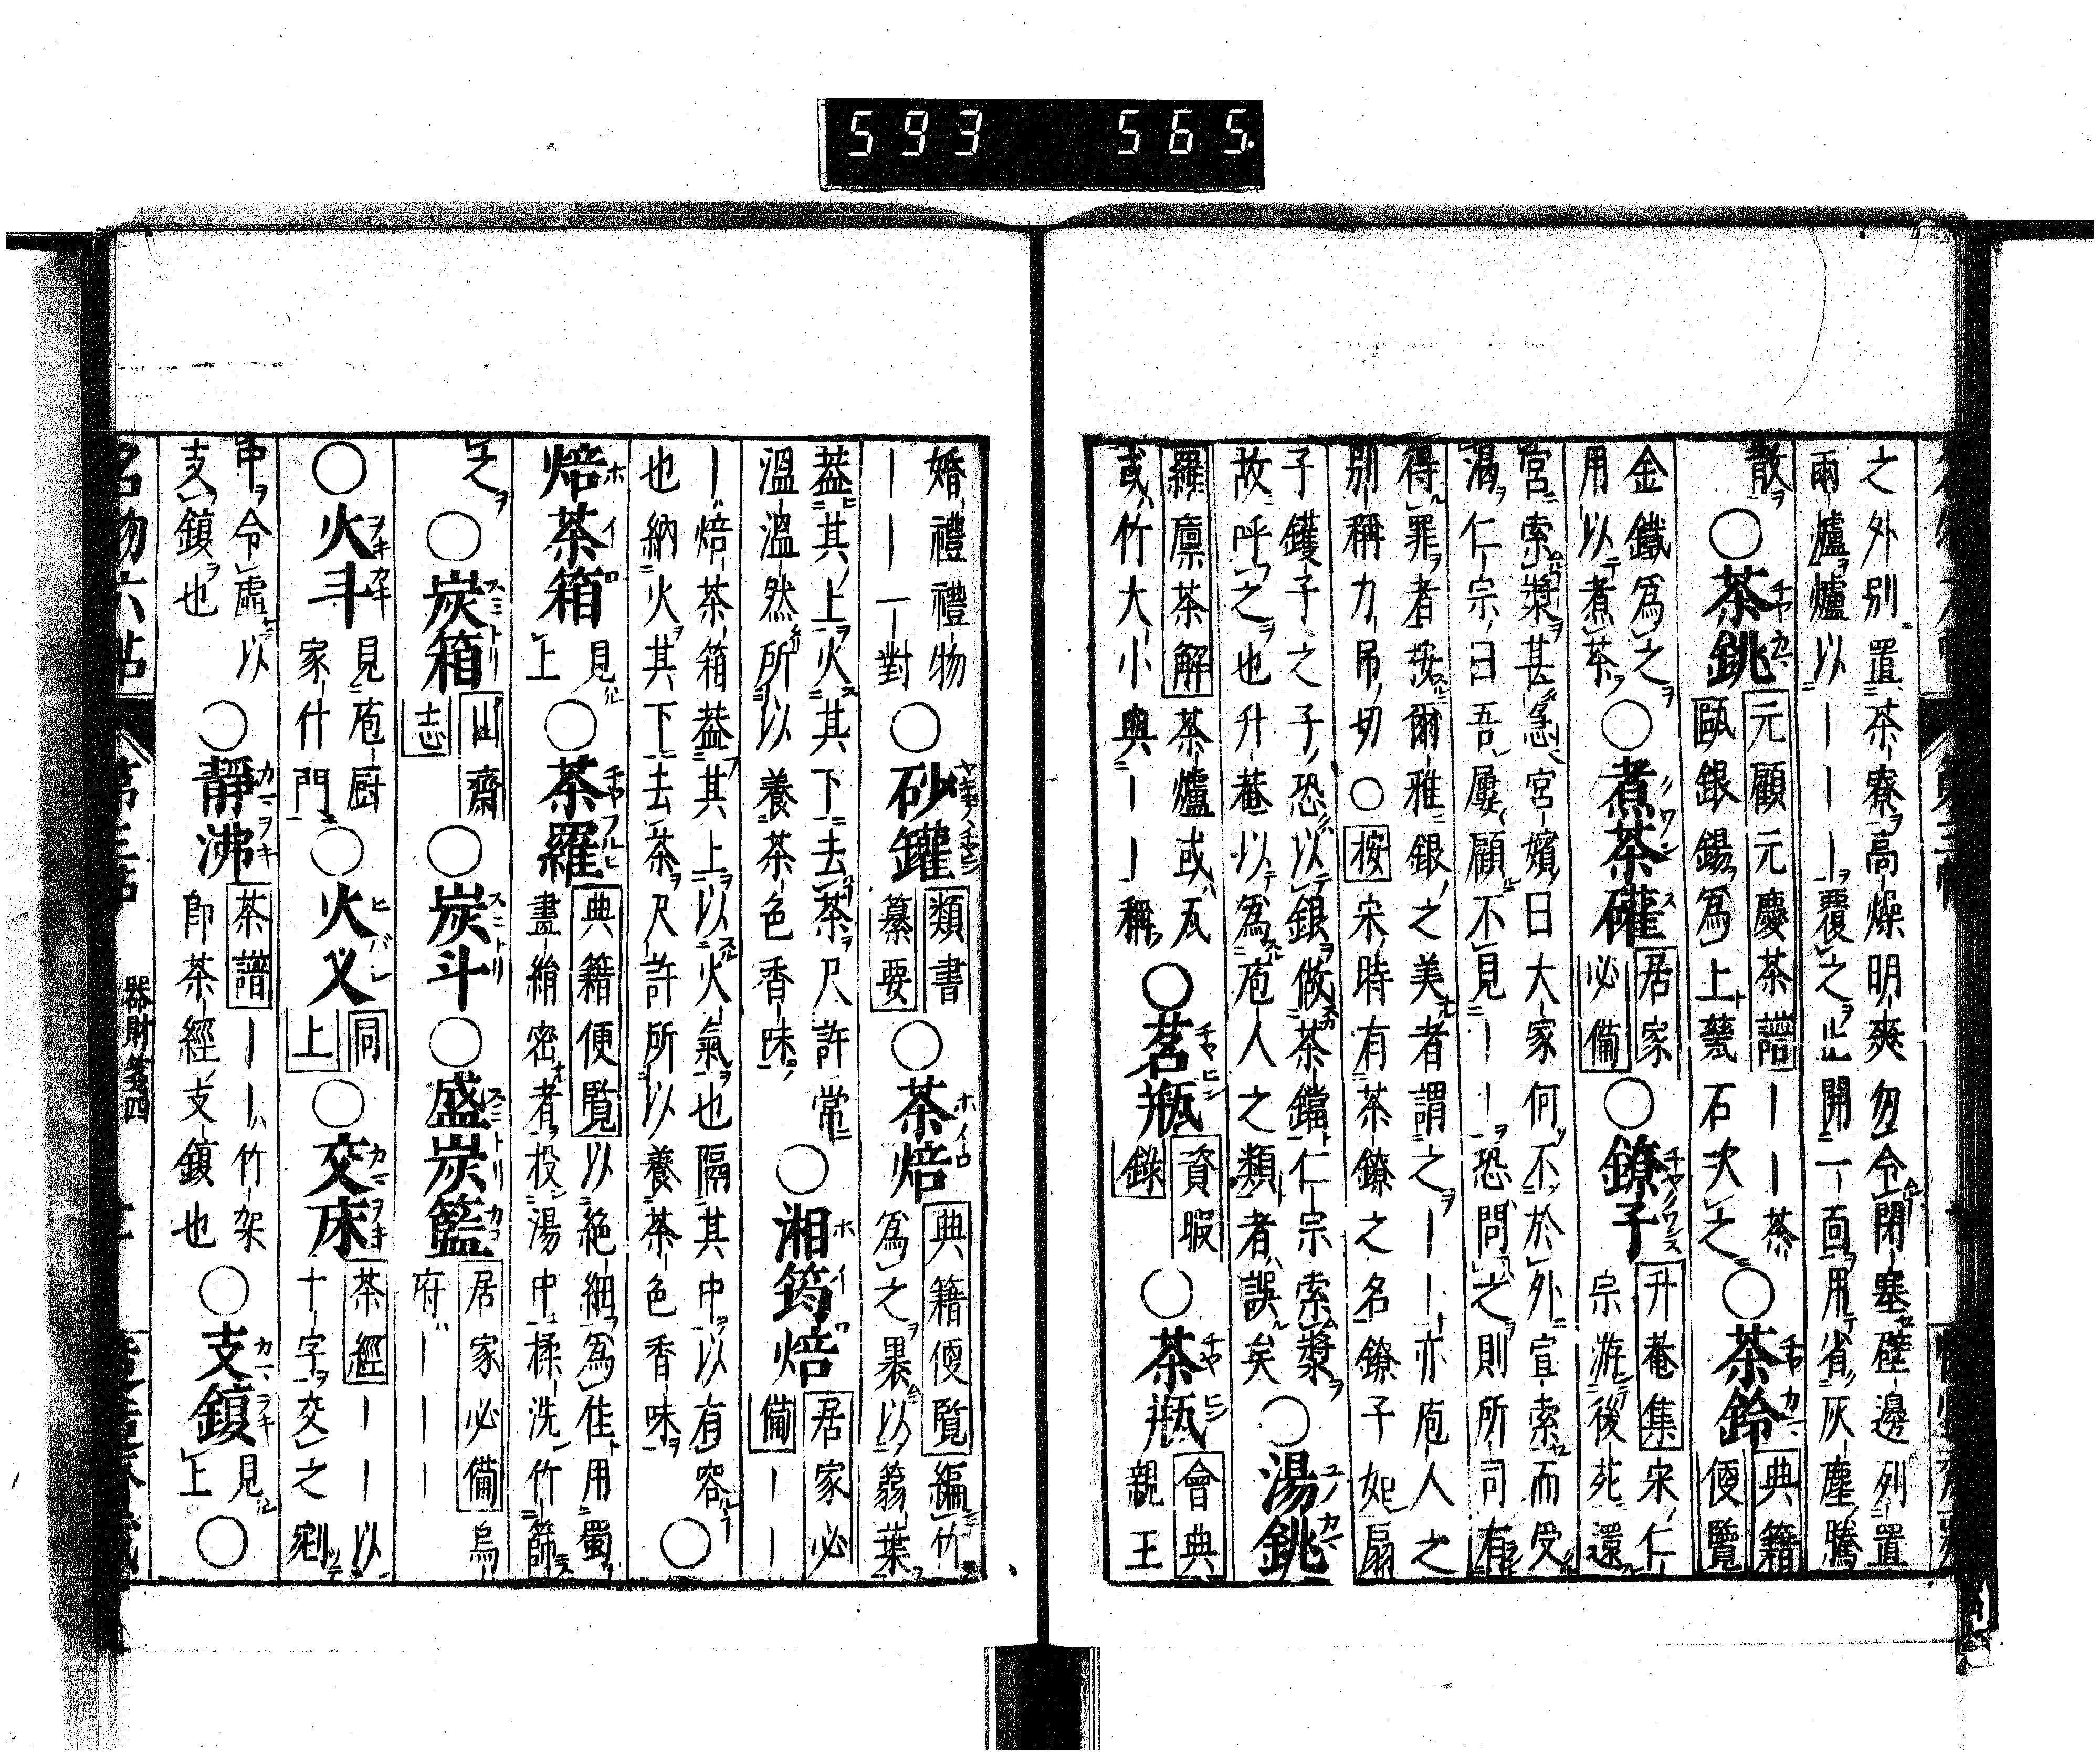 593 565
之外別置茶寮高燥明爽勿令閉塞壁邊列置
兩爐爐以｜｜｜覆之止開一面用省灰塵騰
散
○茶銚 元顧元慶茶譜｜｜茶
甌銀錫爲上甆石次之
○茶鈴 典籍
便覽
金鐵爲之
用以煮茶
○煮茶礶 居家
必備
○鐐子 升菴集宋仁
宗游後苑還
宮索漿甚急宮嬪曰大家何不於外宣索而受
渴仁宗曰吾屢顧不見｜｜恐問之則所司有
得罪者按爾雅銀之美者謂之｜｜亦庖人之
別稱力吊切○按宋時有茶鐐之名鐐子如扇
子鑊子之子恐以銀做茶鐺仁宗索漿
故呼之也升菴以爲庖人之類者誤矣
○湯銚
羅廩茶解茶爐或瓦
或竹大小與｜｜稱
○茗瓶 資暇
錄
○茶瓶 會典
親王
婚禮禮物
｜｜一對
○砂罐 類書
纂要
○茶焙 典籍便覽編竹
爲之裹以蒻葉
蓋其上火其下去茶尺許常
溫溫然所以養茶色香味
○湘筠焙 居家必
備｜｜
｜焙茶箱蓋其上以火氣也隔其中以有容
也納火其下去茶尺許所以養茶色香味
○
焙茶箱 見
上
○茶羅 典籍便覽以絶細爲佳用蜀
畫絹密者投湯中揉洗竹篩
之
○炭箱 山齋
志
○炭斗
○盛炭籃 居家必備烏
府｜｜｜
○火斗 見庖厨
家什門
○火叉 同
上
○交床 茶經｜｜以
十字交之剜
中令虛以
支鎮也
○靜沸 茶譜｜｜竹架
卽茶經支鎮也
○支鎮 見
上
○
名物六帖 第三帖 器財箋四